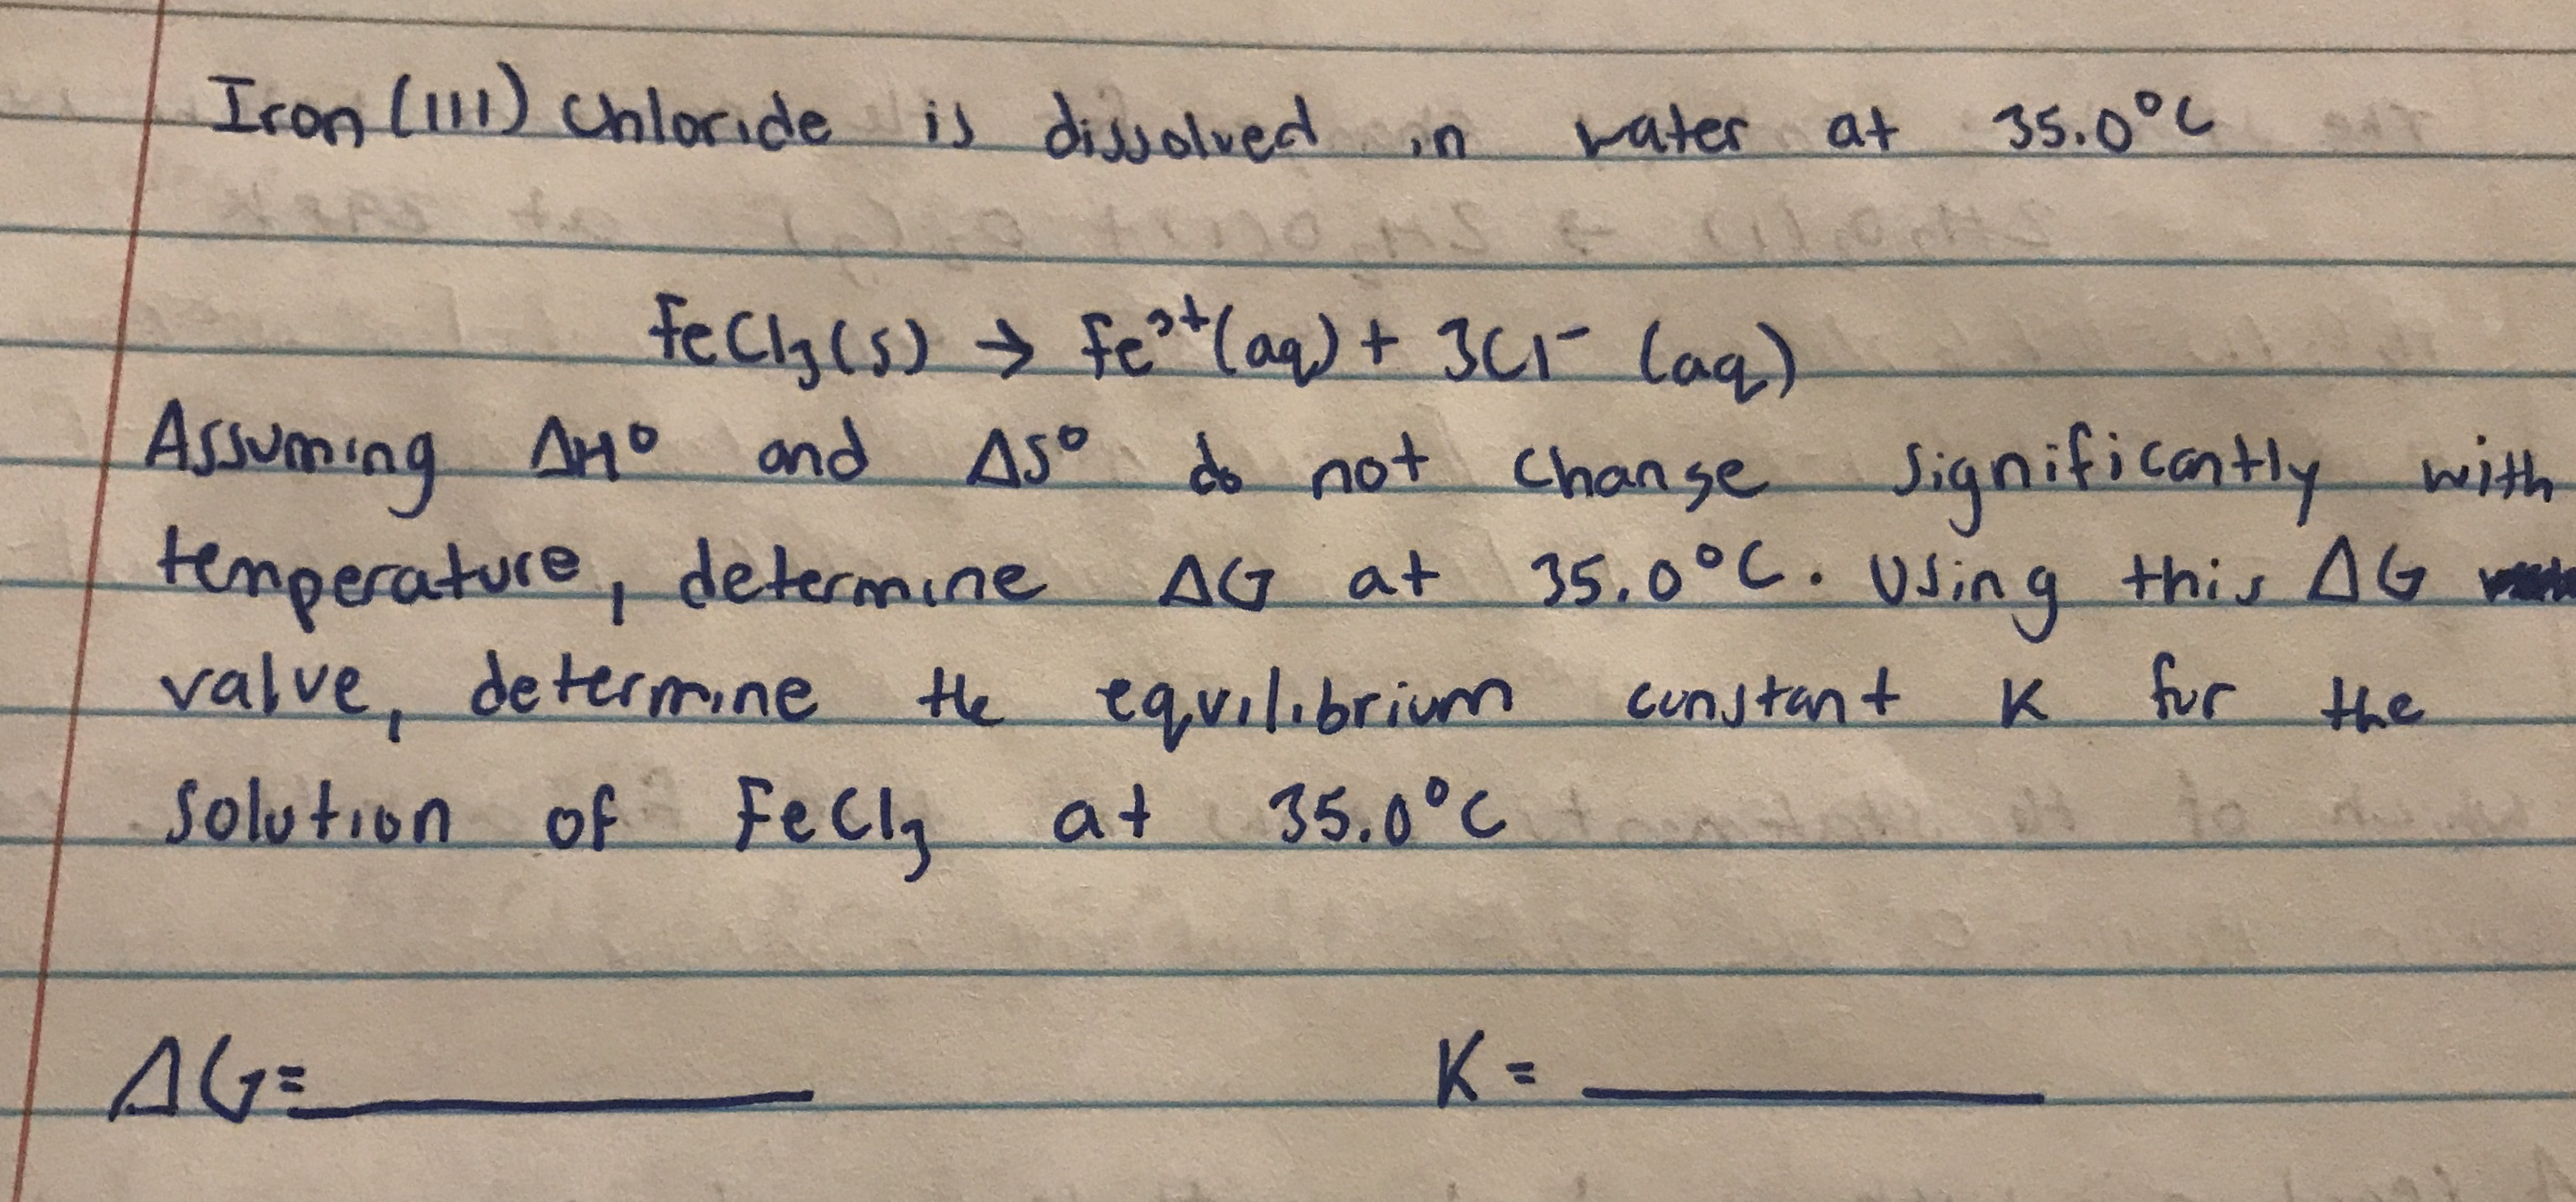 Iron (III) Chloride is dissolved in water at 35.0°C
FeCl₃(s) → Fe³⁺(aq) + 3Cl⁻ (aq)
Assuming ΔH° and ΔS° do not change significantly with
temperature, determine ΔG at 35.0°C. Using this ΔG
value, determine the equilibrium constant K for the
solution of FeCl₃ at 35.0°C
ΔG= K =